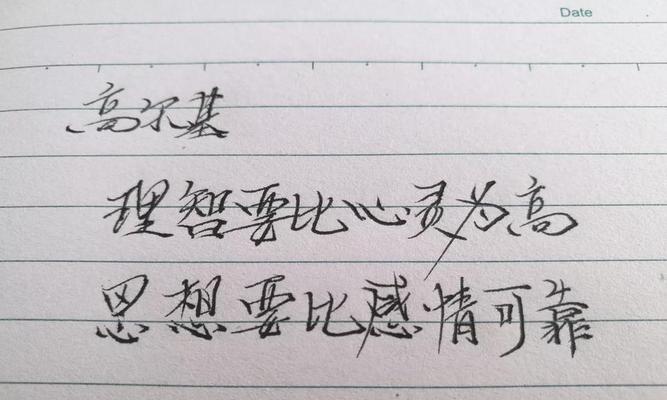 Date
高尔基
理智要比心灵为高
思想要比感情可靠